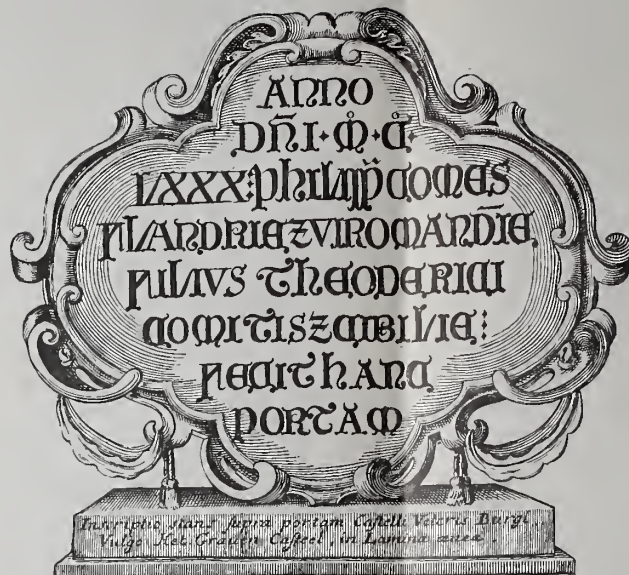 ANNO
DÑI·M̊·C̊·
LXXX:PHILIPP̄ COMES
FLANDRIE Z VIROMANDĪE
FILIVS THEODERICI
COMITIS Z CIBILIE⁝
FECIT HANC
PORTAM
Inscriptio stans supra portam Castelli Veteris Burgi
Vulgo Het Grāuen Casteel, in Lamina ænea.